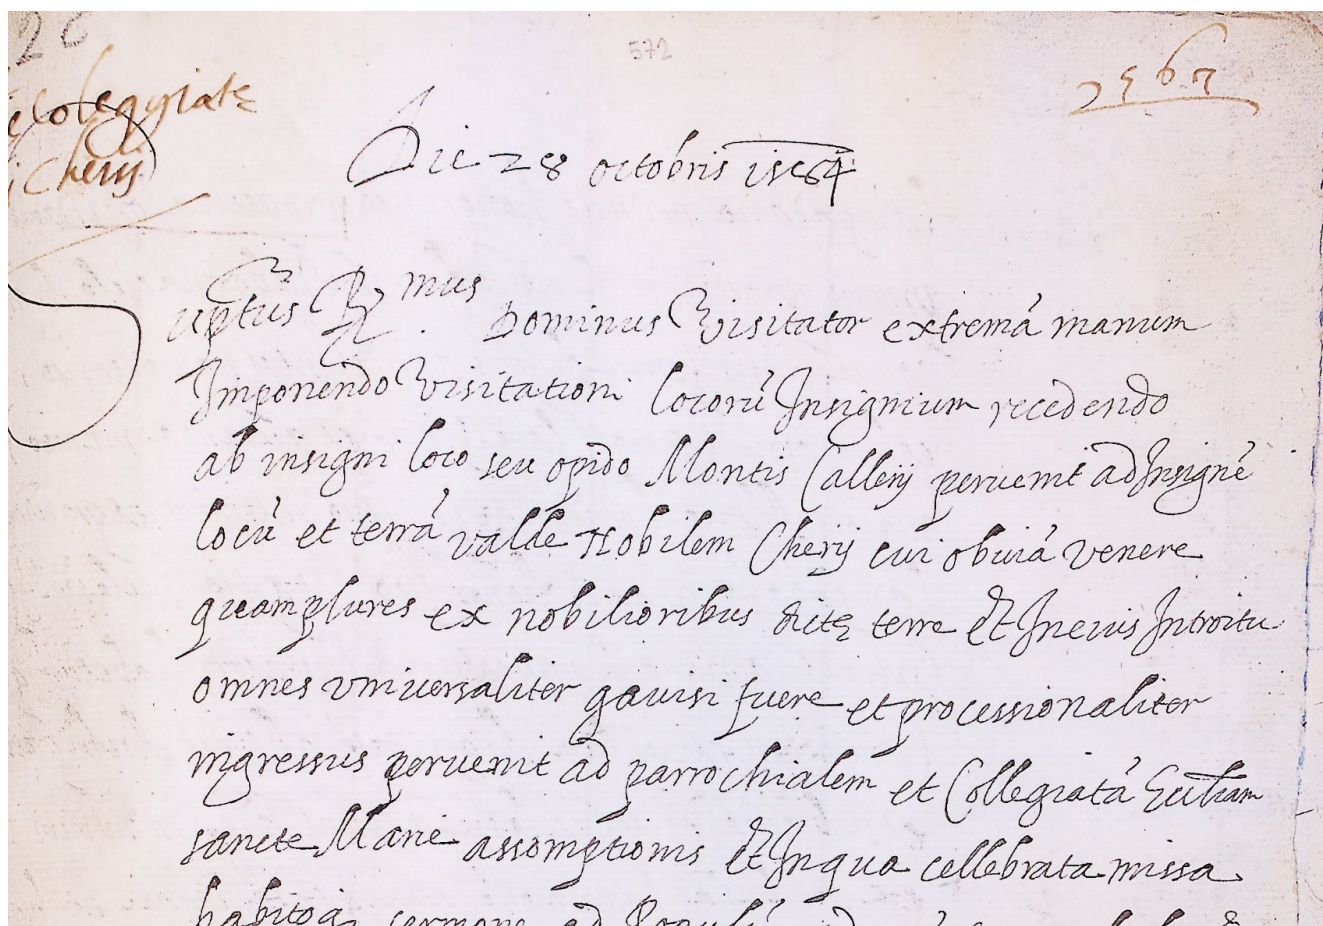 572
2567
Colegiate
Cherij
Die 28 octobris 1584
Suptus R.mus Dominus Visitator extremā manum
Imponendo Visitationi locorū Insignium recedendo
ab insigni loco seu opido Montis Callerij peruenit ad Insignē
locū et terrā valde Nobilem Cherij cui obuiā venere
quamplures ex nobilioribus dicte terre Et In eius Introitu
omnes vniuersaliter gauisi fuere et processionaliter
ingressus peruenit ad parrochialem et Collegiatā Eccliam
sancte Marie assomptionis Et In qua cellebrata missa
sermone ad